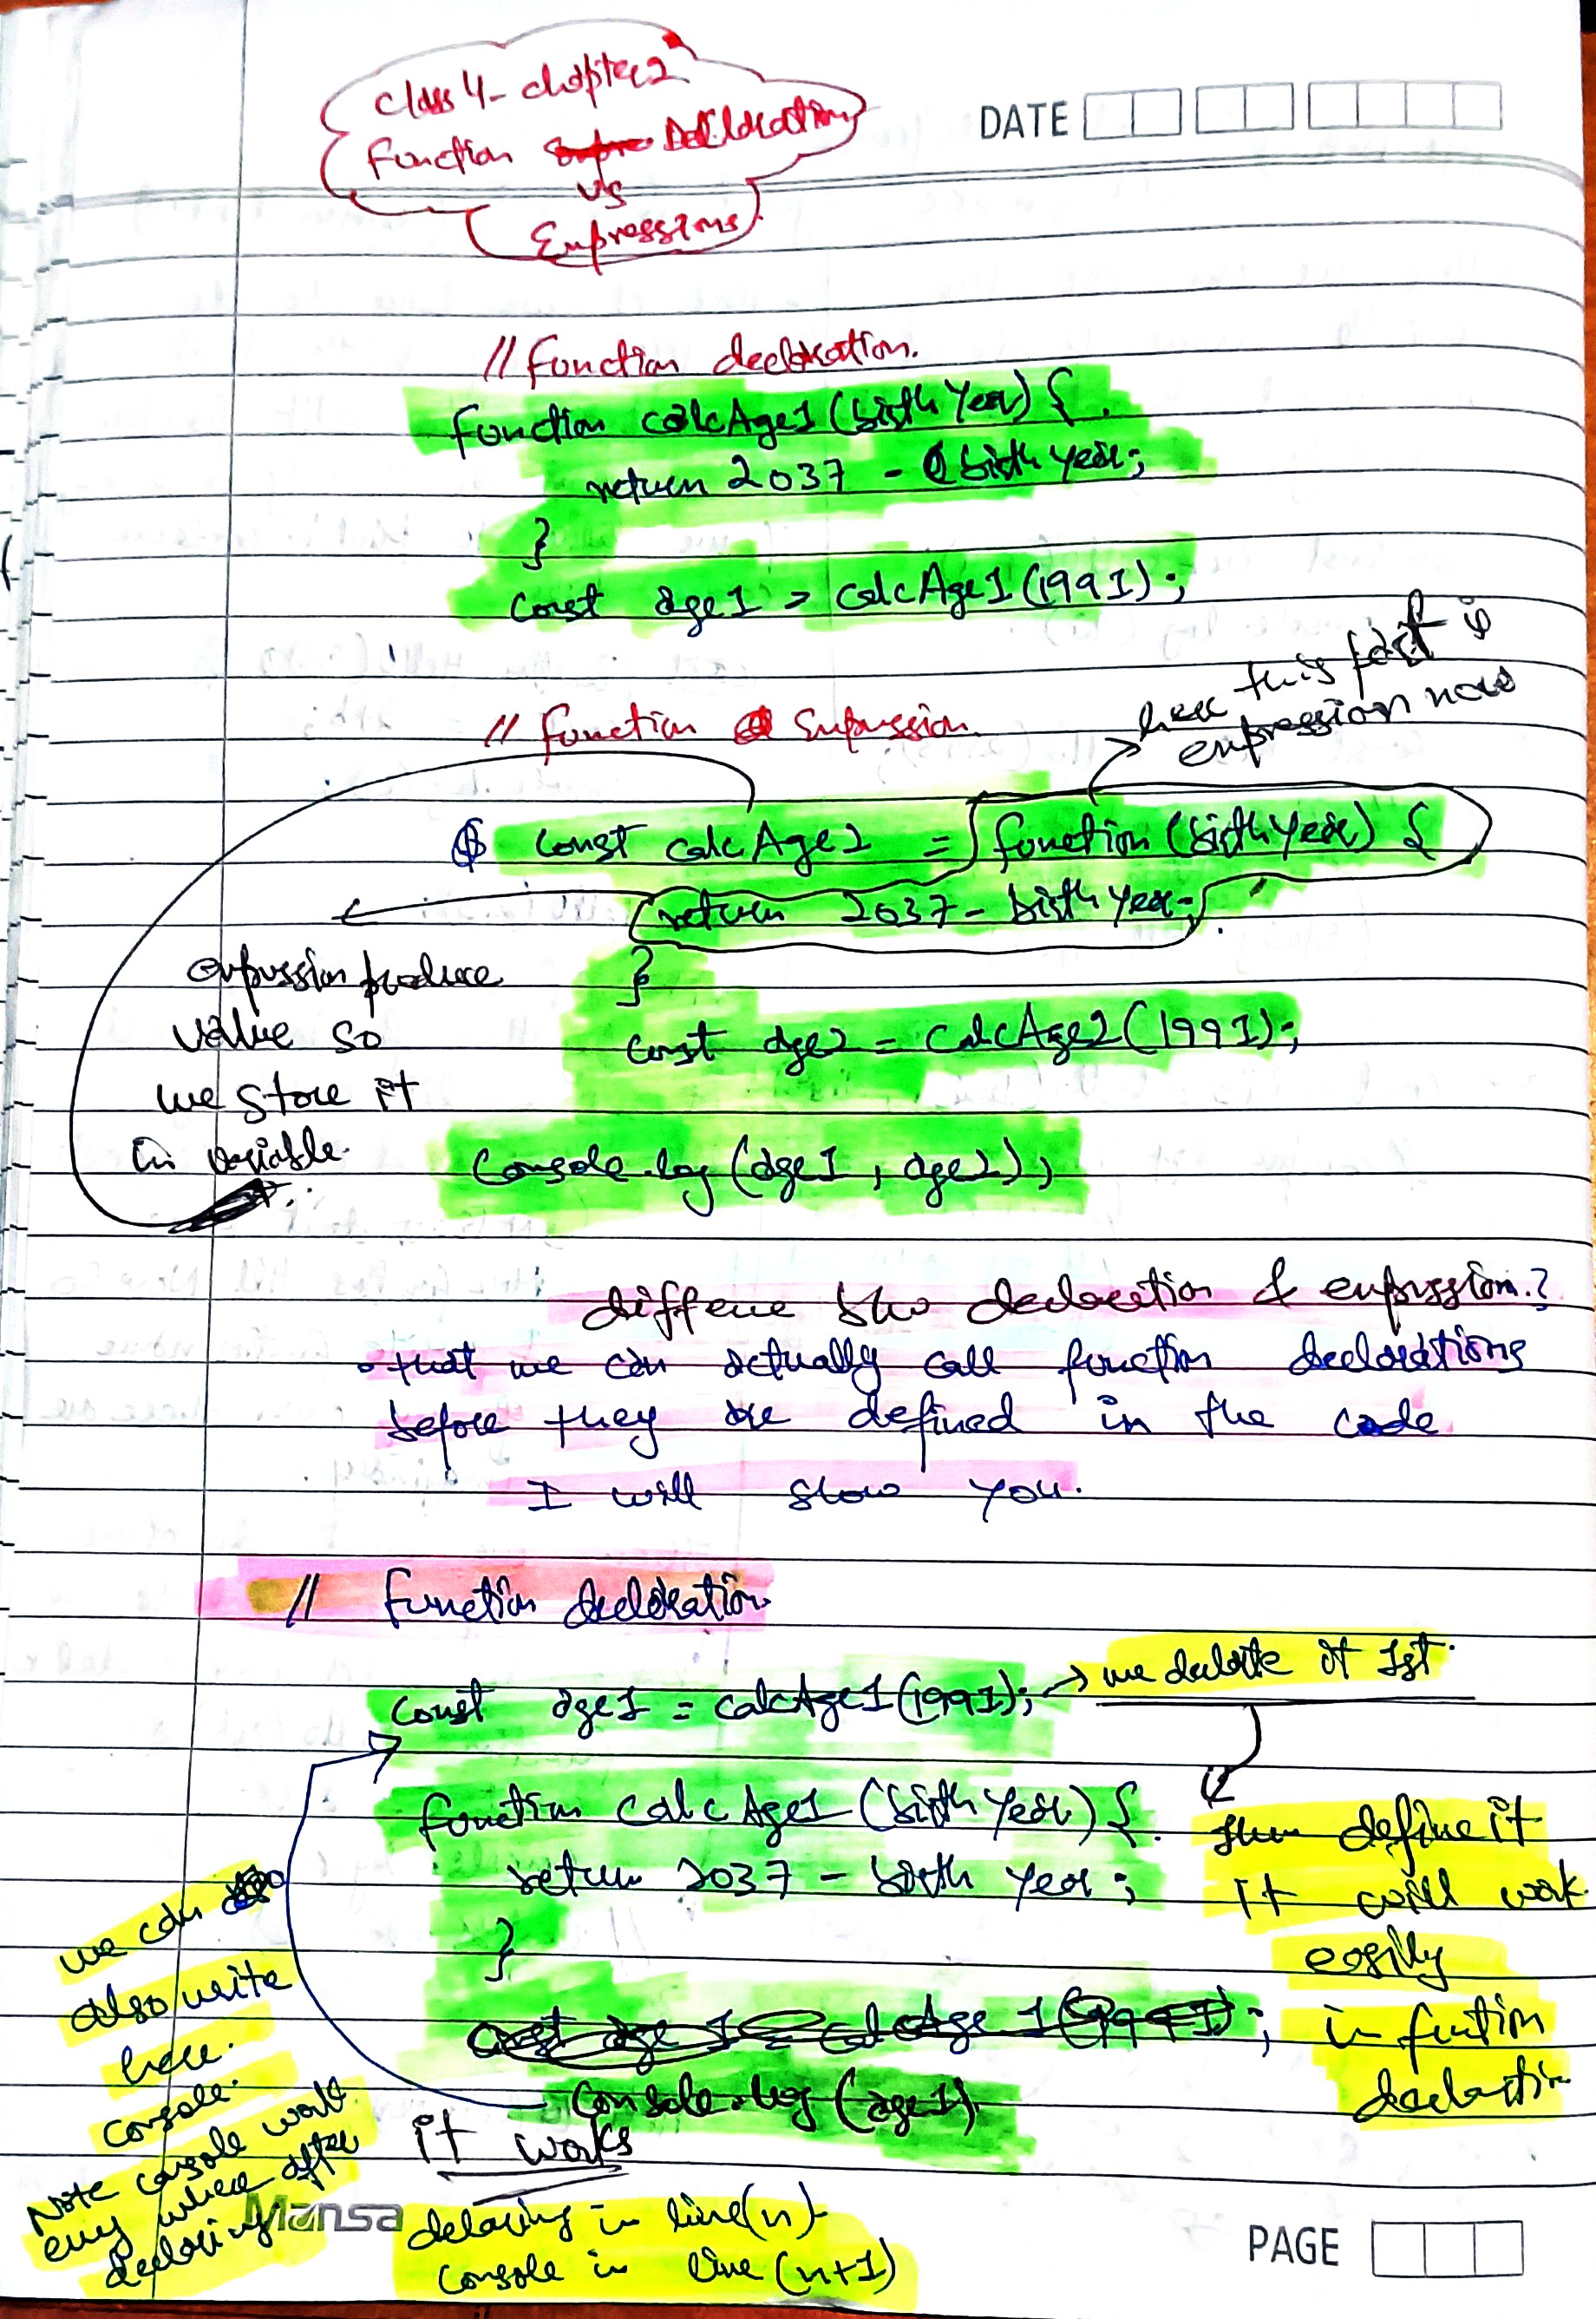 class 4 - chapter 2
Function Decloration
vs
Expressions
DATE
// Function decloration.
function calcAge1 (birthYear) {
return 2037 - birthyear;
}
const age1 = calcAge1 (1991);
// Function Expression
here this part is
expression now
const calcAge2 = function (birthYear) {
return 2037 - birthyear;
}
expression produce
value so
we store it
in variable.
const age2 = calcAge2 (1991);
console.log (age1, age2);
diffence b/w decloration & expression.?
• that we can actually call function declorations
before they are defined in the code
I will show you.
// Function decloration
const age1 = calcAge1 (1991); → we declare it 1st.
function calcAge1 (birthYear) {
return 2037 - birth year;
}
then define it
it will work
easily
in fuction
declaration
const age 1 = calcAge 1 (1991);
console.log (age1)
we can
also write
here.
console.
Note console work
every where after
decloring
it works
decloring in line (n)
console in line (n+1)
Mansa
PAGE